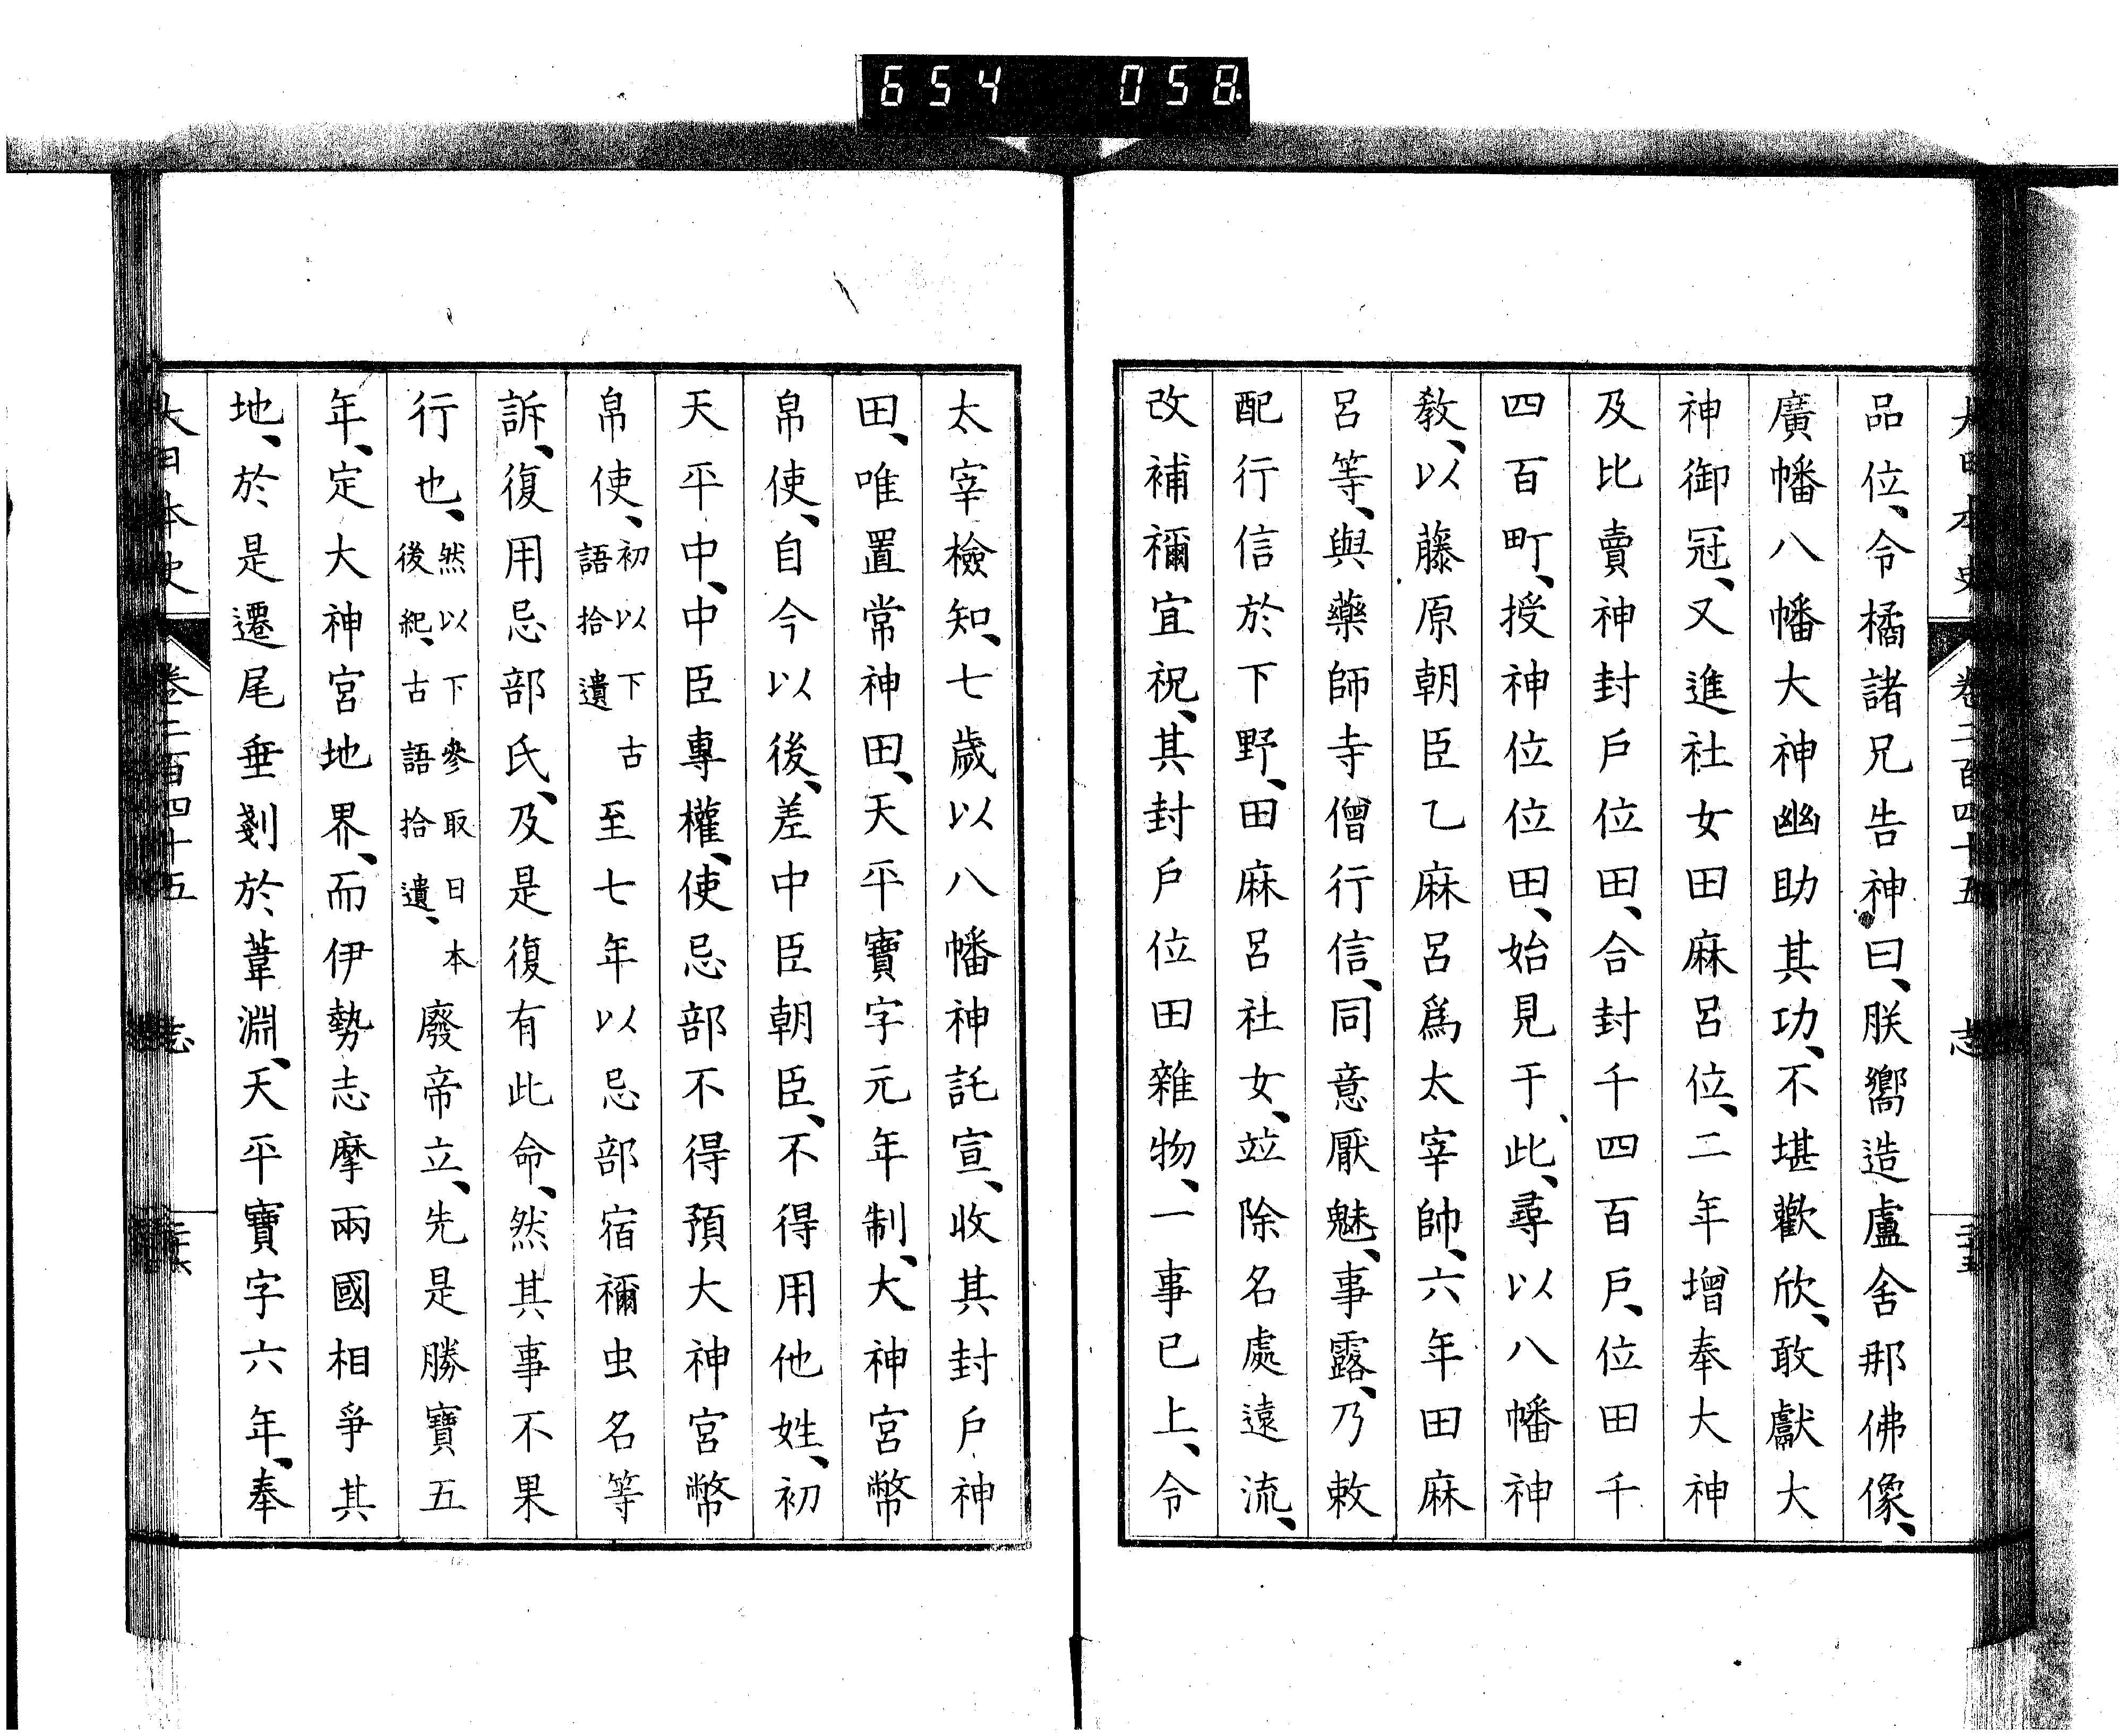 654 058
大日本史 卷二百四十五 志
品位、令橘諸兄告神曰、朕嚮造盧舍那佛像、
廣幡八幡大神幽助其功、不堪歡欣、敢獻大
神御冠、又進社女田麻呂位、二年增奉大神
及比賣神封戶位田、合封千四百戶、位田千
四百町、授神位位田、始見于此、尋以八幡神
教、以藤原朝臣乙麻呂爲太宰帥、六年田麻
呂等、與藥師寺僧行信、同意厭魅、事露、乃敕
配行信於下野、田麻呂社女、竝除名處遠流、
改補禰宜祝、其封戶位田雜物、一事已上、令
太宰檢知、七歲以八幡神託宣、收其封戶神
田、唯置常神田、天平寶字元年制、大神宮幣
帛使、自今以後、差中臣朝臣、不得用他姓、初
天平中、中臣專權、使忌部不得預大神宮幣
帛使、初以下古語拾遺至七年以忌部宿禰虫名等
訴、復用忌部氏、及是復有此命、然其事不果
行也、然以下參取日本後紀、古語拾遺、廢帝立、先是勝寶五
年、定大神宮地界、而伊勢志摩兩國相爭其
地、於是遷尾垂剗於葦淵、天平寶字六年、奉
大日本史 卷二百四十五 志